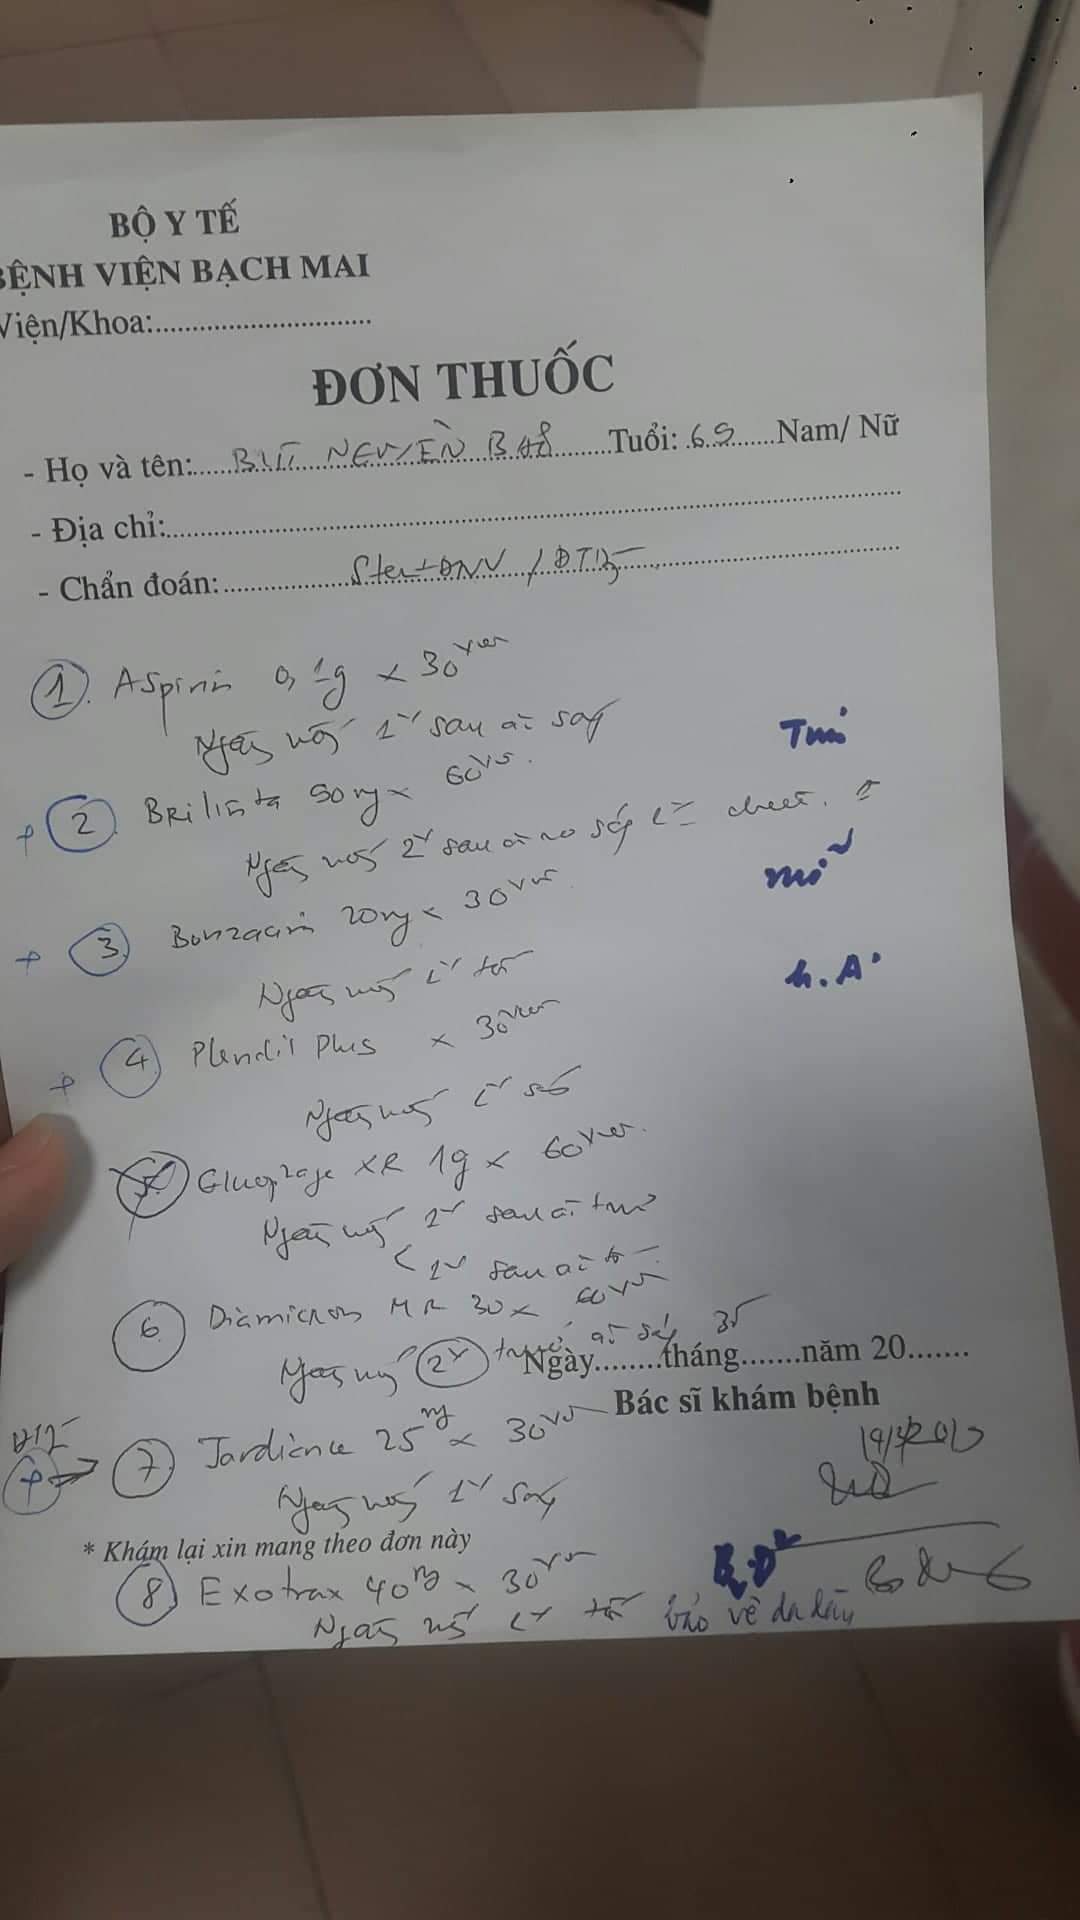 BỘ Y TẾ
BỆNH VIỆN BẠCH MAI
Viện/Khoa:
ĐƠN THUỐC
- Họ và tên: BÙI NGUYÊN Tuổi: 69 Nam/ Nữ
- Địa chỉ:
- Chẩn đoán: Stent ĐMV / ĐTĐ
1. Aspirin 0,1g x 30 viên
Ngày uống 1v sau ăn sáng
Tim
2. Brilinta 90mg x 60 v
Ngày uống 2v sau ăn no sáng chiều
mỡ
3. Bonzacim 20mg x 30 viên
Ngày uống 1v tối
h.A
4. Plendil Plus x 30 viên
Ngày uống 1v sáng
5. Glucophage XR 1g x 60 viên
Ngày uống 1v sau ăn trưa
1v sau ăn tối
6. Diamicron MR 30 x 60 v
Ngày uống 2v trước ăn sáng
Ngày........tháng.......năm 20.......
Bác sĩ khám bệnh
7. Jardiance 25mg x 30 v
Ngày uống 1v sáng
* Khám lại xin mang theo đơn này
8. Exotrax 40mg x 30 v
Ngày uống 1v tối bảo vệ dạ dày